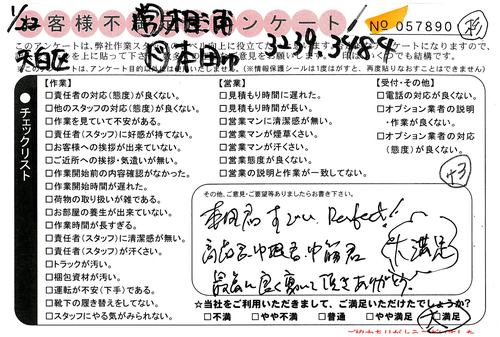 1/22
お客様不満足度アンケート
No 057890
杉
このアンケートは、弊社作業スタッフ
※このアンケートは、アンケート目的以外は使用いたしません。(※情報保護シールは1度はがすと、再度貼りなおすことはできません)
3239.348.4
● チェックリスト
【作業】
□責任者の対応(態度)が良くない。
□他のスタッフの対応(態度)が良くない。
□作業を見ていて不安がある。
□責任者(スタッフ)に好感が持てない。
□お客様への挨拶が出来ていない。
□ご近所への挨拶・気遣いが無い。
□作業開始前の内容確認がなかった。
□作業開始時間が遅れた。
□荷物の取り扱いが雑である。
□お部屋の養生が出来ていない。
□作業時間が長すぎる。
□責任者(スタッフ)に清潔感が無い。
□責任者(スタッフ)が汗くさい。
□トラックが汚い。
□梱包資材が汚い。
□運転が不安(下手)である。
□靴下の履き替えをしてない。
□スタッフにやる気がみられない。
【営業】
□見積もり時間に遅れた。
□見積もり時間が長い。
□営業マンに清潔感が無い。
□営業マンが煙草くさい。
□営業マンが汗くさい。
□営業態度が良くない。
□営業の説明と作業が一致してない。
【受付・その他】
□電話の対応が良くない。
□オプション業者の説明
・作業が良くない。
□オプション業者の対応
(態度)が良くない。
+3
その他、ご意見・ご要望等ありましたらお書き下さい。
本田君 すごい Perfect!!
大満足
最高に良く動いて頂きありがとう。
☆当社をご利用いただきまして、ご満足いただけたでしょうか?
□不満 □やや不満 □普通 □やや満足 □満足
大